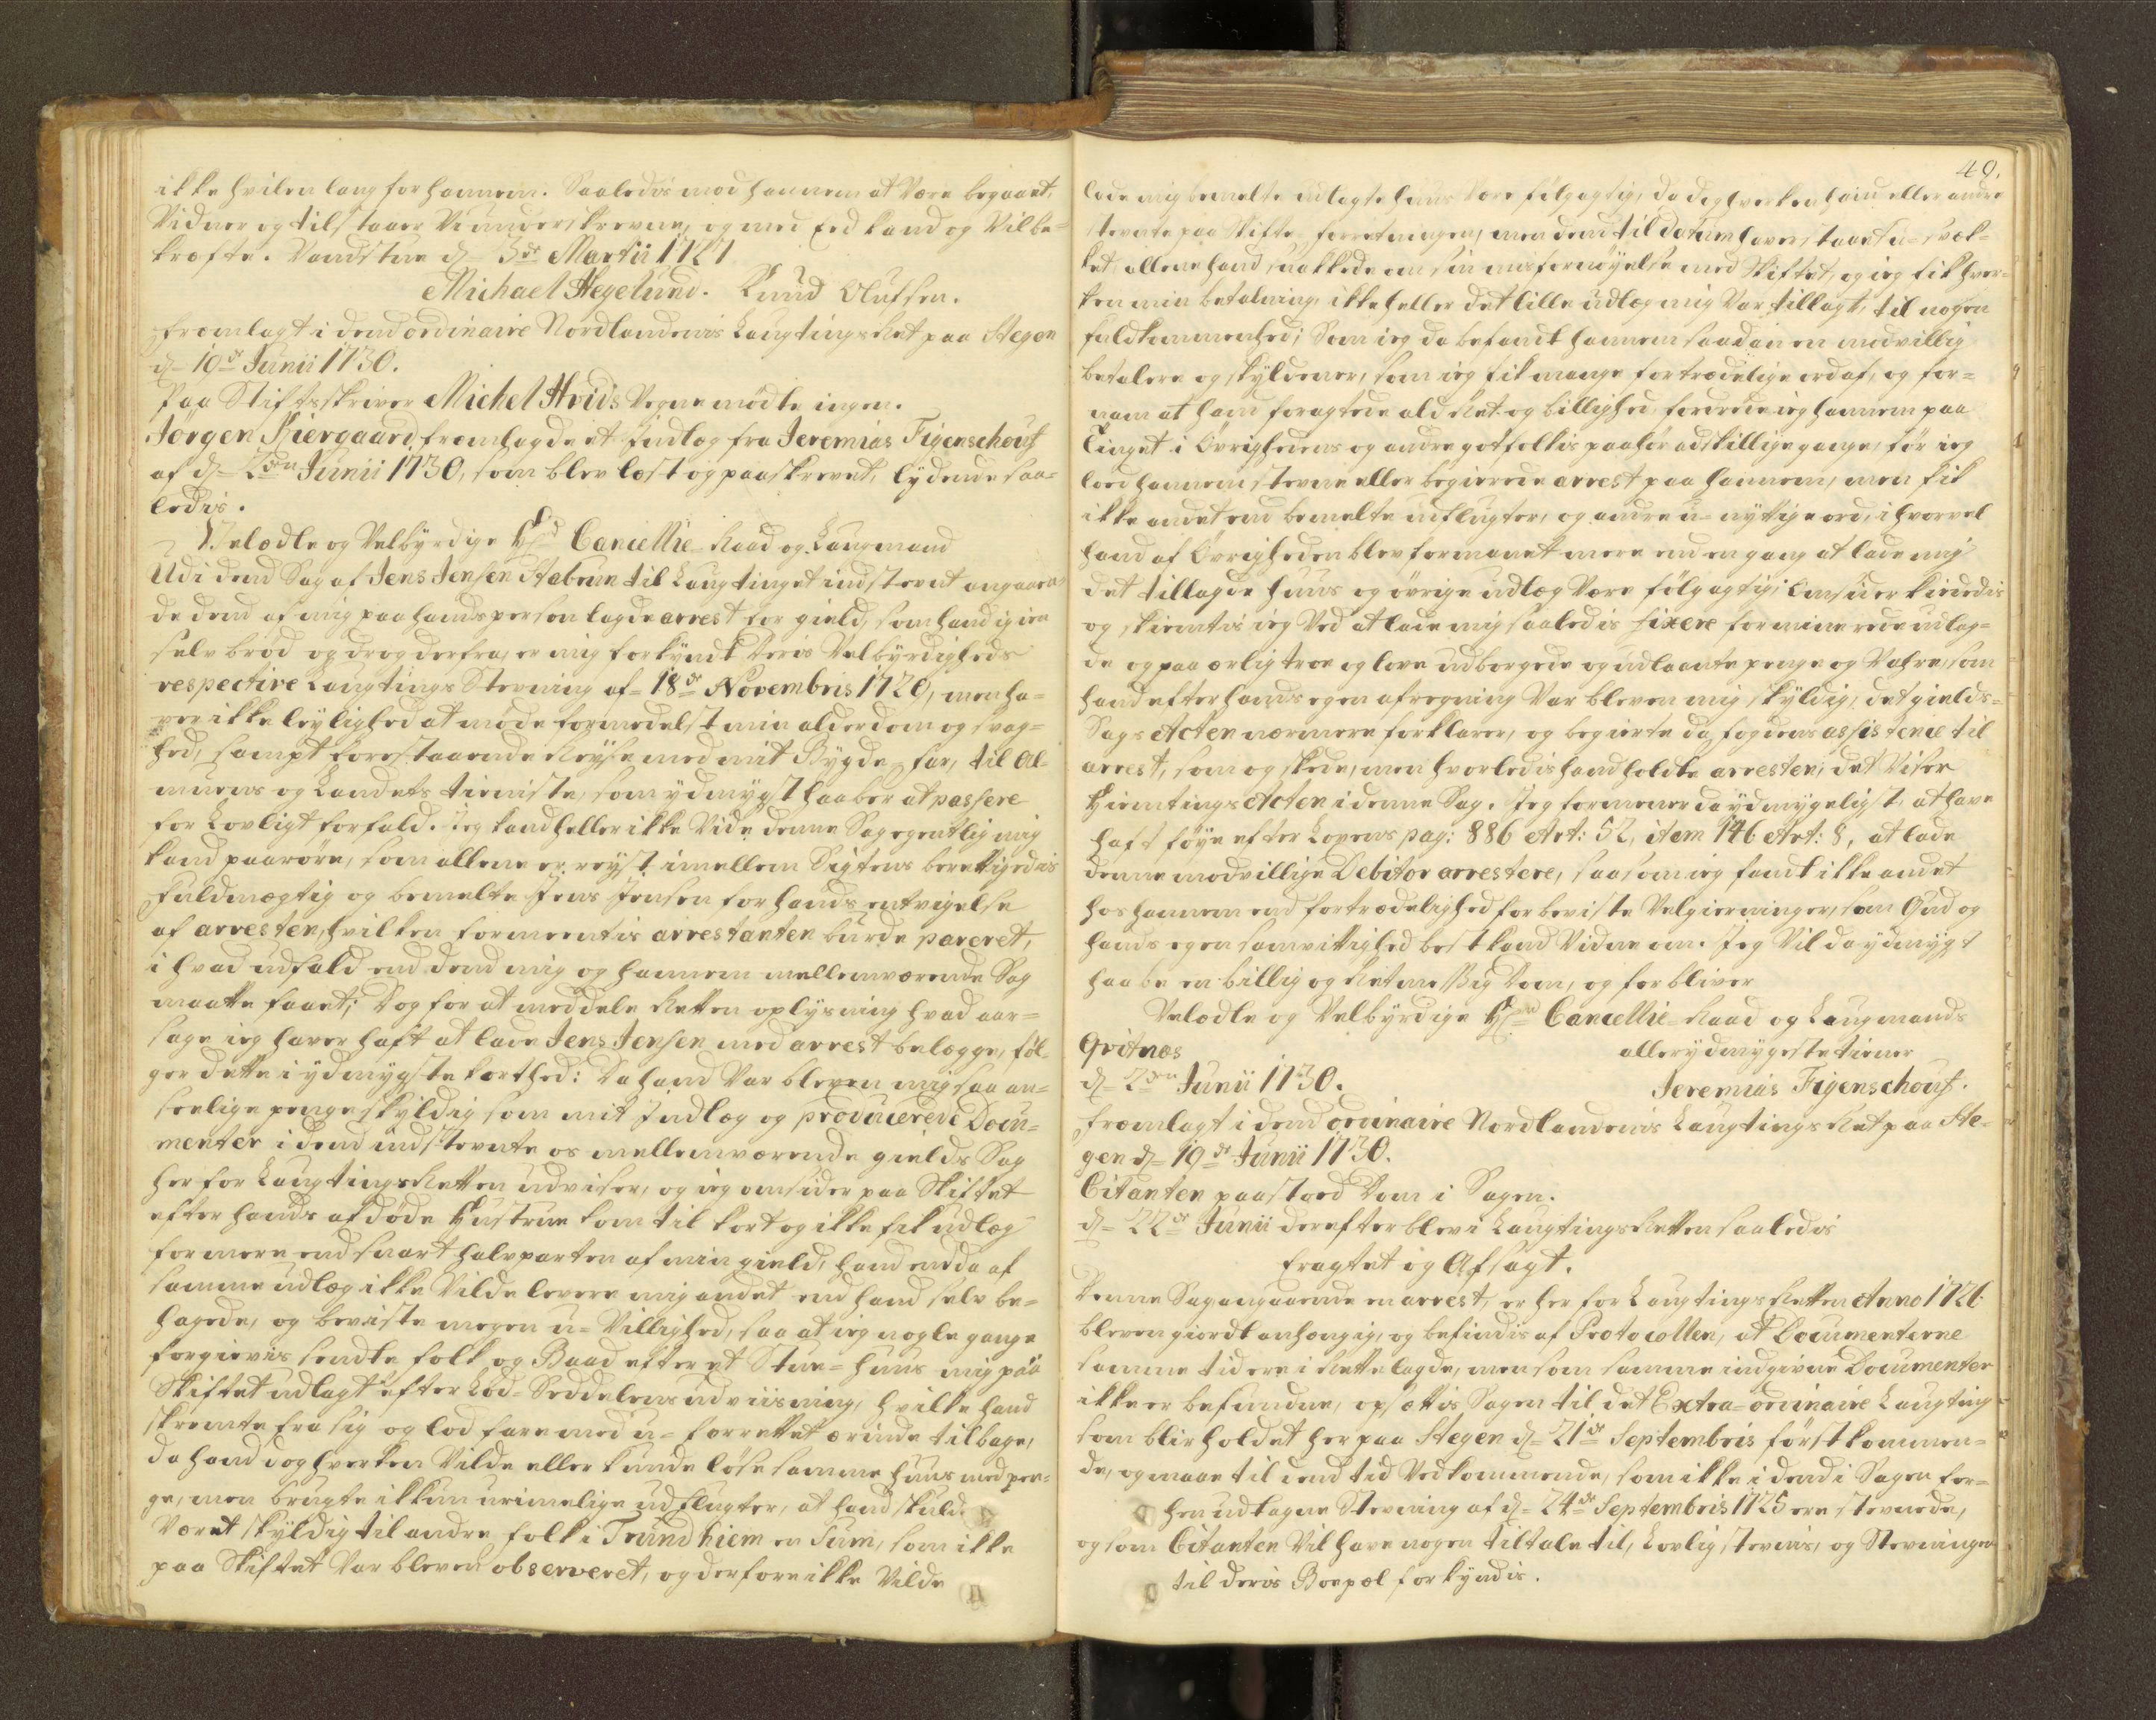 ikke hvilen lang for hannem. Saaledis mod hannem at være begaaet,
Vidner og tilstaaer Vi underskrevne, og med Eed kand og Vil be-
kræfte. Vandstue d. 3de Martii 1727
Michael Hegelund. Knud Olufsen.
fremlagt i dend ordinaire Nordlandenis Laugtings Ret paa Stegen
d. 19de Junii 1730.
Paa Stiftsskriver Michel Hvids Vegne mødte ingen.
Jørgen Kiergaard fremlagde et Indlæg fra Jeremias Figenschouf
af d. 2den Junii 1730, som blev læst og paaskrevet, lydende saa-
ledis.
Velædle og Velbyrdige Hr. Cancellie-Raad og Laugmand
Udi dend Sag af Jens Jensen Stabrun til Laugtinget indstevnt angaaen-
de dend af mig paa hands person lagde arrest for gield, som hand igien
selv brød og drog derfra, er mig forkyndt Deris Velbyrdigheds
respective Laugtings Stevning af 18de Novembris 1729, men ha-
ver ikke leylighed at møde formedelst min alderdom og svag-
hed, sampt forestaaende Reyse med mit Bygde-far, til Al-
muens og Landets tieniste, som ydmygst haaber at passere
for Lovligt forfald. Jeg kand heller ikke Vide denne Sag egentlig mig
kand paarøre, som allene er reyst imellem Sigtens berettigedis
fuldmægtig og bemelte Jens Jensen for hands entvigelse
af arresten, hvilken formeentis arrestanten burde pareret,
i hvad udfald end dend mig og hannem mellemværende Sag
maatte faaet; Dog for at meddele Retten oplysning hvad aar-
sage ieg haver haft at lade Jens Jensen med arrest belægge, føl-
ger dette i ydmygste korthed: Da hand Var bleven mig saa an-
seelige penge skyldig som mit Indlæg og producerede Docu-
menter i dend indstevnte os mellemværende gields Sag
her for Laugtings Retten udviser, og ieg omsider paa Skiftet
efter hands afdøde Hustrue kom til kort og ikke fik udlæg
for mere end snart halvparten af min gield, hand endda af
samme udlæg ikke Vilde levere mig andet end hand selv be-
hagede, og beviste megen u-Villighed, saa at ieg nogle gange
forgievis sendte folk og Baad efter et Stue-huus mig paa
Skiftet udlagt efter Lod-Seddelens udviisning, hvilke hand
skremte fra sig og lod fare med u-forrettet ærinde tilbage,
da hand dog hverken Vilde eller kunde løse samme huus med pen-
ge, men brugte ikkun urimelige udflugter, at hand skulde
Været skyldig til andre folk i Trundhiem en Sum, som ikke
paa Skiftet Var bleven observeret, og derfore ikke Vilde
49.
lade mig bemelte udlagte huus være følgagtig, da dog hverken hand eller andre
stevnte paa Skifte-forretningen, men dend til datum haver staaet u-svæk-
ket, allene hand snakkede om sin misfornøyelse med Skiftet, og ieg fik hver-
ken min betalning, ikke heller det lille udlæg mig Var tillagt, til nogen
fuldkommenhed; Som ieg da befandt hannem saadan en modvillig
betalere og skyldener, som ieg fik mange fortrædelige ord af, og for-
nam at hand foragtede ald Ret og billighed, fordrede ieg hannem paa
Tinget i Øvrighedens og andre got folkis paahør adskillige gange, før ieg
loed hannem stevne eller begierede arrest paa hannem, men fik
ikke andet end bemelte udflugter, og andre u-nyttige ord, ihvorvel
hand af Øvrigheden blev formanet mere end en gang at lade mig
det tillagde huus og øvrige udlæg Være følgagtig; Omsider kiededis
og skiemtis ieg Ved at lade mig saaledis fixere for mine rede udlag-
de og paa ærlig troe og love udborgede og udlaante penge og Vahre, som
hand efter hands egen afregning Var bleven mig skyldig, det gields-
Sags Acten nærmere forklarer, og begierte da fogdens assistence til
arrest, som og skede, men hvorledis hand holdte arresten, det Viser
Hiemtings Acten i denne Sag. Jeg formener da ydmygeligst, at have
haft føye efter Lovens pag: 886 Art: 52, item 146 Art: 8, at lade
denne modvillige Debitor arrestere, saasom ieg fandt ikke andet
hos hannem end fortrædelighed for beviste Velgierninger, som Gud og
hands egen samvittighed best kand Vidne om. Jeg Vil da ydmygst
haabe en billig og Retmessig Dom, og forbliver
Velædle og Velbyrdige Hr. Cancellie-Raad og Laugmands
Qvitnæs allerydmygeste tiener
d. 2den Junii 1730. Jeremias Figenschouf.
fremlagt i dend ordinaire Nordlandenis Laugtings Ret paa Ste-
gen d. 19de Junii 1730.
Citanten paastoed Dom i Sagen.
d. 22de Junii derefter blev i Laugtings Retten saaledis
Eragtet og Afsagt.
Denne Sag angaaende en arrest, er her for Laugtings Retten Anno 1726
bleven giordt anhængig, og befindis af Protocollen, at Documenterne
samme tid ere i Rette lagde, men som samme indgivne Documenter
ikke er befundne, opsættis Sagen til det Extra-ordinaire Laugting
som blir holdet her paa Stegen d. 21de Septembris førstkommen-
de, og maae til dend tid Vedkommende, som ikke i dend i Sagen for-
hen udtagne Stevning af d. 24de Septembris 1725 ere stevnede,
og som Citanten Vil have nogen tiltale til, Lovlig stevnis, og Stevningen
til deris Boepæl forkyndis.